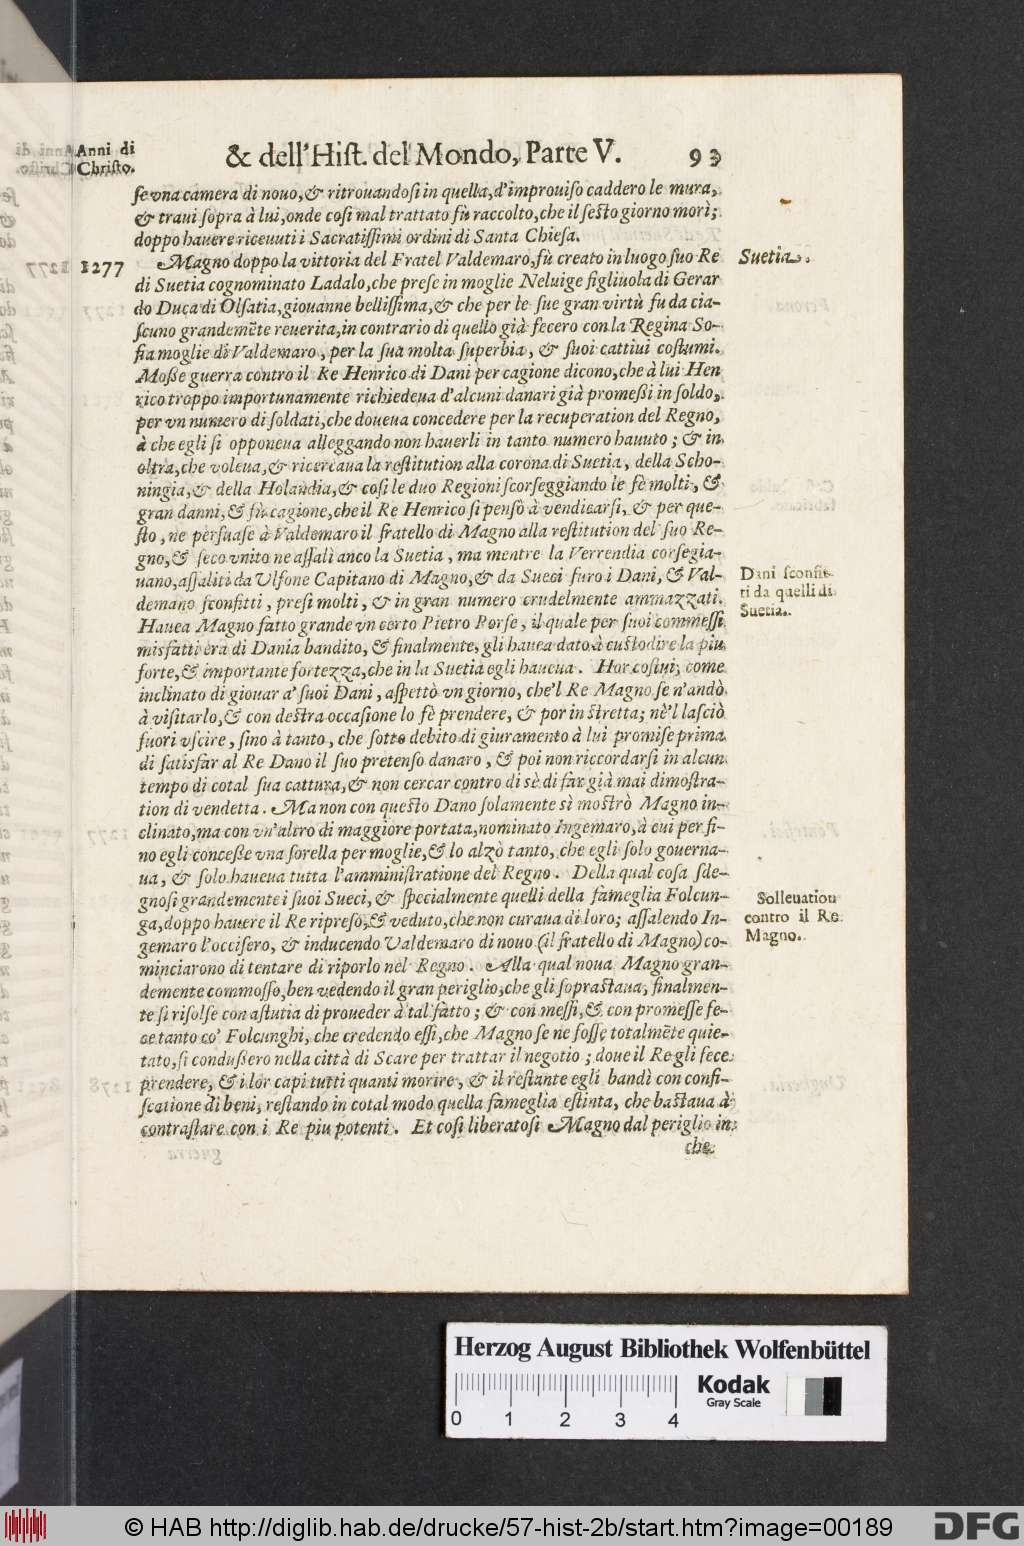 Anni di
Christo.
& dell'Hist. del Mondo, Parte V. 93
se vna camera di nouo, & ritrouandosi in quella, d'improuiso caddero le mura,
& traui sopra à lui, onde così mal trattato fù raccolto, che il sesto giorno morì;
doppo hauere riceuuti i Sacratissimi ordini di Santa Chiesa.
1277 Magno doppo la vittoria del Fratel Valdemaro, fù creato in luogo suo Re
Suetia.
di Suetia cognominato Ladalo, che prese in moglie Neluige figliuola di Gerar
do Duca di Olsatia, giouanne bellissima, & che per le sue gran virtù fu da cia-
scuno grandemēte reuerita, in contrario di quello già fecero con la Regina So-
fia moglie di Valdemaro, per la sua molta superbia, & suoi cattiui costumi.
Moße guerra contro il Re Henrico di Dani per cagione dicono, che à lui Hen
rico troppo importunamente richiedeua d'alcuni danari già promeßi in soldo,
per vn numero di soldati, che doueua concedere per la recuperation del Regno,
à che egli si opponeua alleggando non hauerli in tanto numero hauuto; & in
oltra, che voleua, & ricercaua la restitution alla corona di Suetia, della Scho-
ningia, & della Holandia, & così le duo Regioni scorseggiando le fè molti, &
gran danni, & fù cagione, che il Re Henrico si pensò à vendicarsi, & per que-
sto, ne persuase à Valdemaro il fratello di Magno alla restitution del suo Re-
gno, & seco vnito ne assalì anco la Suetia, ma mentre la Verrendia corsegia-
uano, assaliti da Vlfone Capitano di Magno, & da Sueci furo i Dani, & Val-
Dani sconfit-
ti da quelli di
Suetia.
demano sconfitti, presi molti, & in gran numero crudelmente ammazzati.
Hauea Magno fatto grande vn certo Pietro Porse, il quale per suoi commessi
misfatti era di Dania bandito, & finalmente, gli hauea dato à custodire la piu
forte, & importante fortezza, che in la Suetia egli haueua. Hor costui, come
inclinato di giouar a' suoi Dani, aspettò vn giorno, che'l Re Magno se n'andò
à visitarlo, & con destra occasione lo fè prendere, & por in stretta; nè'l lasciò
fuori vscire, sino à tanto, che sotto debito di giuramento à lui promise prima
di satisfar al Re Dano il suo pretenso danaro, & poi non riccordarsi in alcun
tempo di cotal sua cattura, & non cercar contro di sè di far già mai dimostra-
tion di vendetta. Ma non con questo Dano solamente sì mostrò Magno in-
clinato, ma con vn'altro di maggiore portata, nominato Ingemaro, à cui per fi-
no egli conceße vna sorella per moglie, & lo alzò tanto, che egli solo gouerna-
ua, & solo haueua tutta l'amministratione del Regno. Della qual cosa sde-
gnosi grandemente i suoi Sueci, & specialmente quelli della fameglia Folcun-
ga, doppo hauere il Re ripreso, & veduto, che non curaua di loro; assalendo In-
Solleuation
contro il Re
Magno.
gemaro l'occisero, & inducendo Valdemaro di nouo (il fratello di Magno) co-
minciarono di tentare di riporlo nel Regno. Alla qual noua Magno gran-
demente commosso, ben vedendo il gran periglio, che gli soprastaua, finalmen-
te si risolse con astutia di proueder à tal fatto; & con messi, & con promesse fe-
ce tanto co' Folcunghi, che credendo essi, che Magno se ne fosse totalmēte quie-
tato, si condußero nella città di Scare per trattar il negotio; doue il Re gli fece
prendere, & i lor capi tutti quanti morire, & il restante egli bandì con confi-
scatione di beni, restando in cotal modo quella fameglia estinta, che bastaua à
contrastare con i Re piu potenti. Et così liberatosi Magno dal periglio in
che
Herzog August Bibliothek Wolfenbüttel
Kodak
Gray Scale
0 1 2 3 4
© HAB http://diglib.hab.de/drucke/57-hist-2b/start.htm?image=00189
DFG